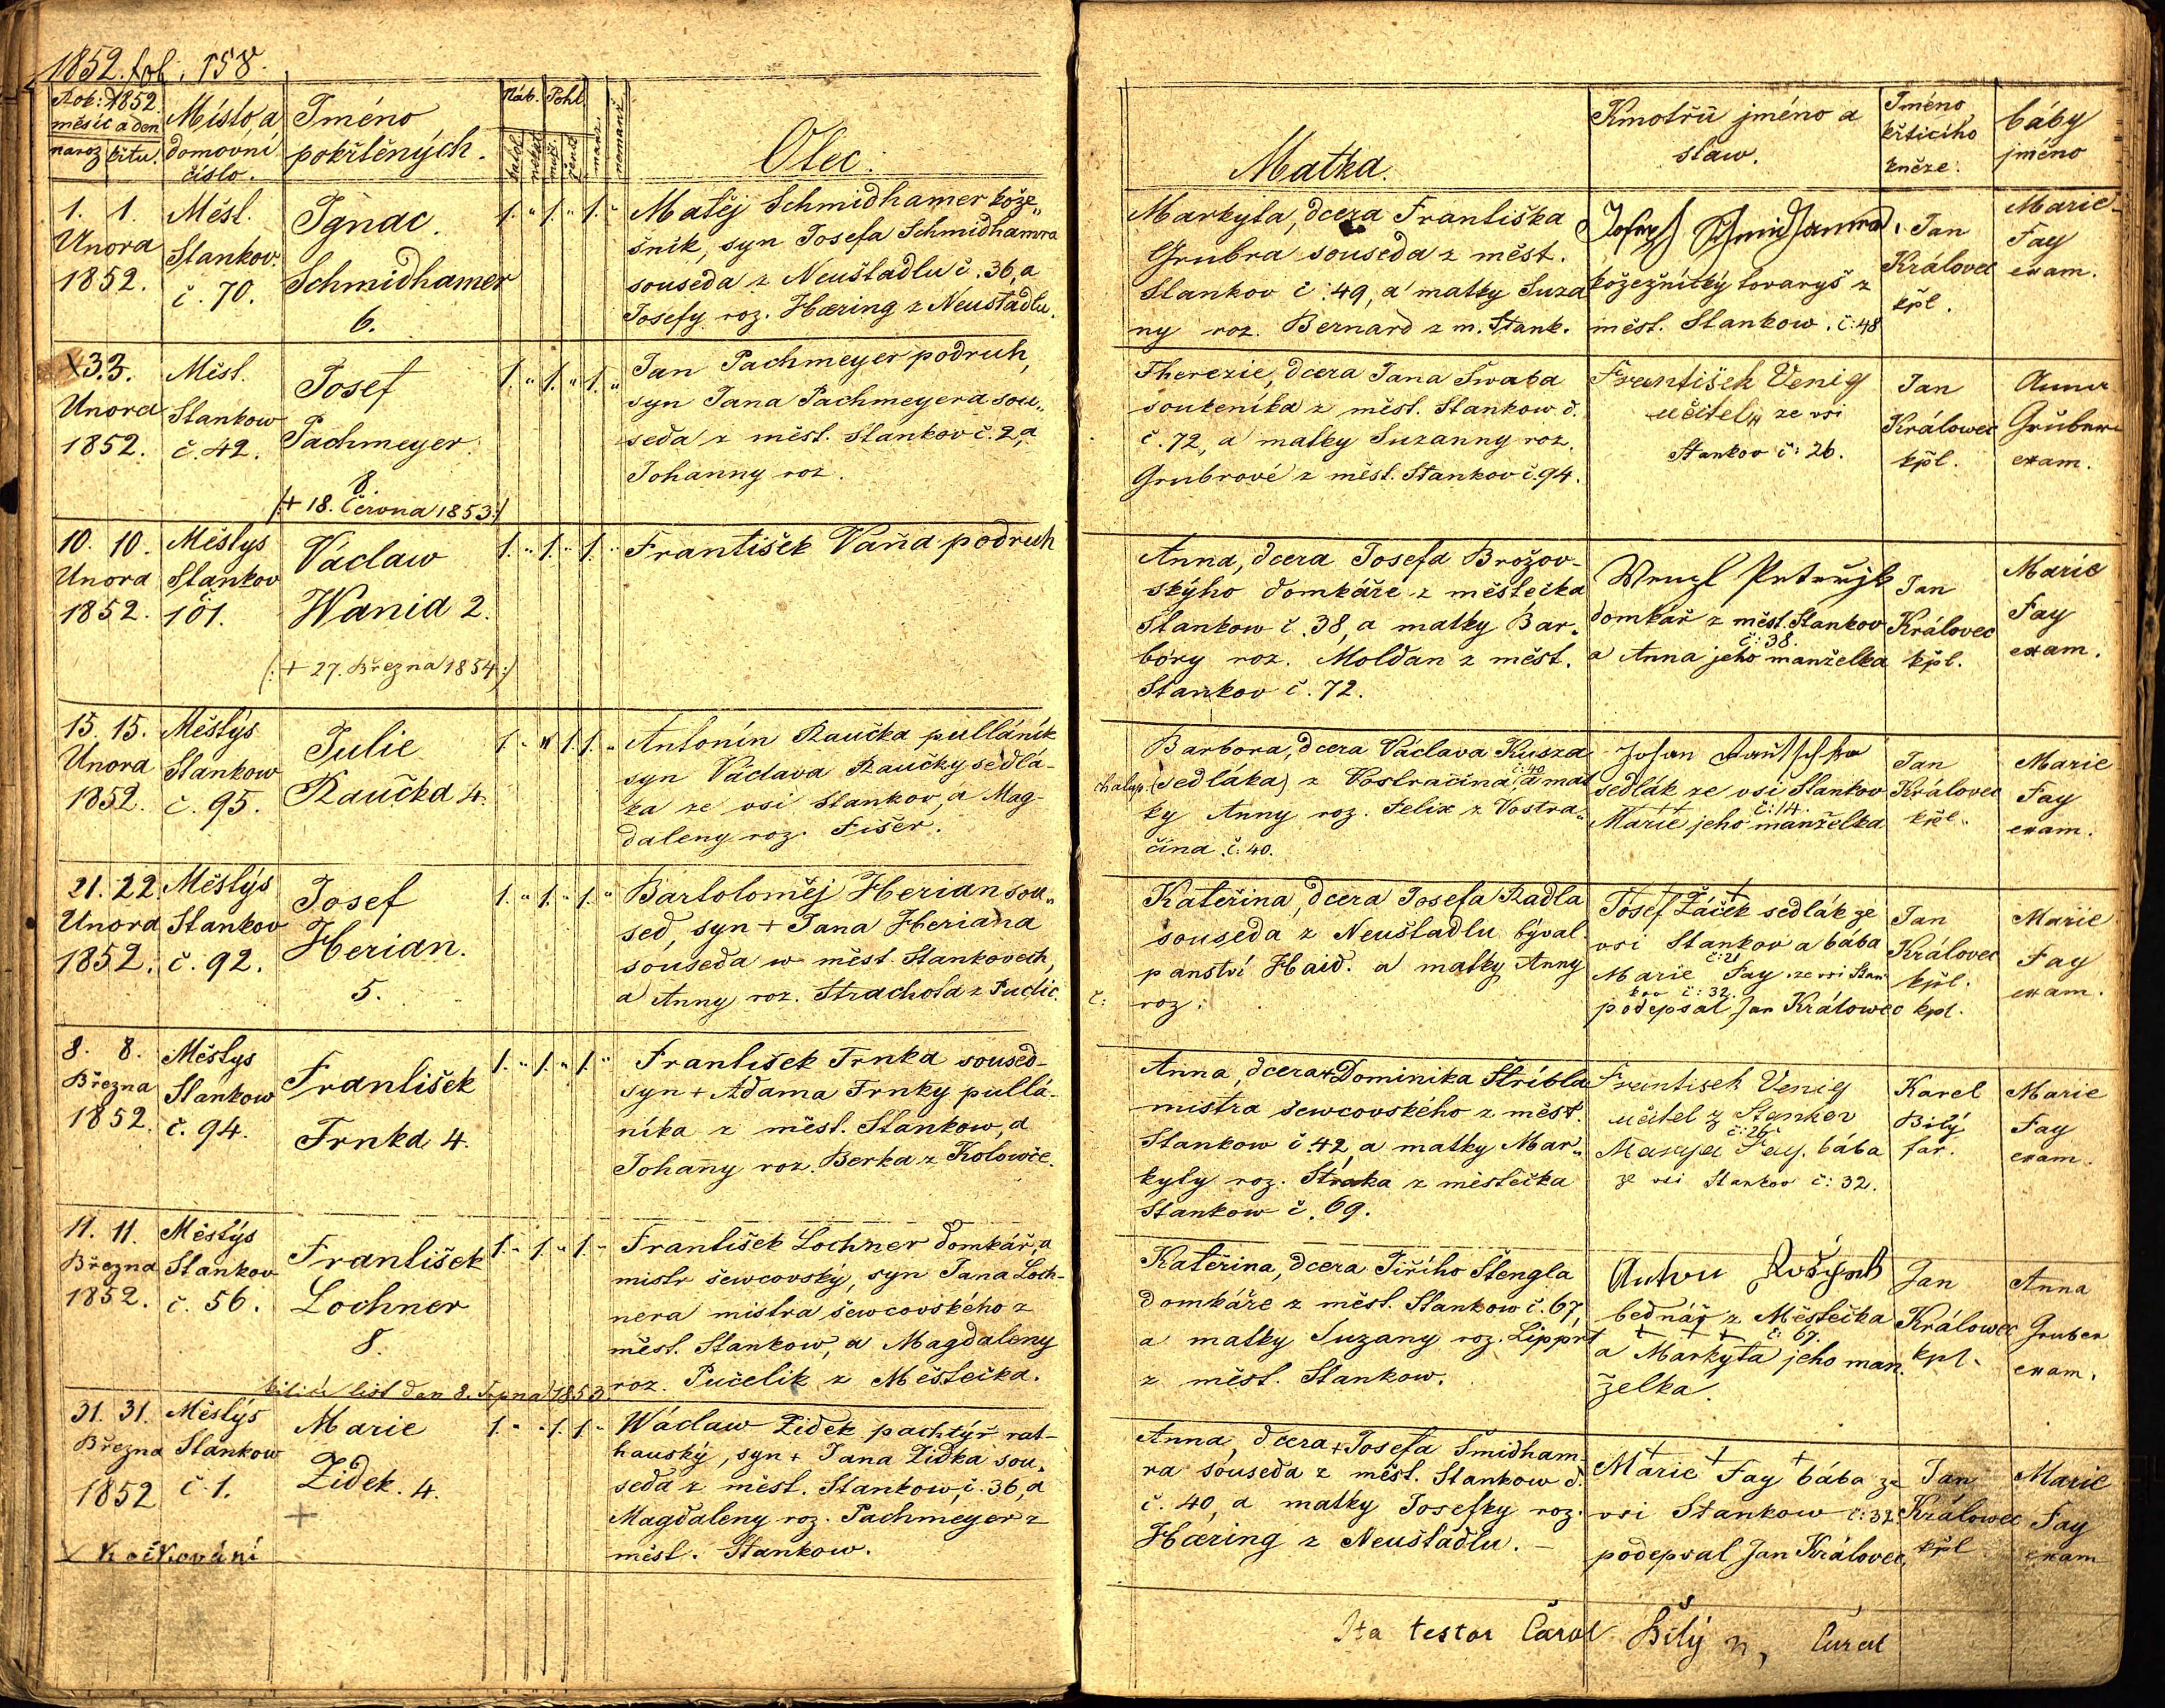 1852. fol. 158.
Rok: 1852.
měsíc a den
naroz křtu.
Místo, a
domovní
číslo.
Jméno
pokřtěných.
Náb. Pohl.
katol. nekat. muž. žens. manž. nemanž.
Otec.
Matka.
Kmotřů jméno a
staw.
Jméno
křticího
kněze:
báby
jméno
1. 1.
Unora
1852.
Měst.
Stankov.
č. 70.
Ignac.
Schmidhamer
6.
1. " 1. " 1. "
Matěj Schmidhamer kože„
šnik, syn Josefa Schmidhamra
souseda z Neuštadlu č. 36, a
Josefy roz. Hæring z Neuštadlu.
Markyta, dcera Františka
Grubra souseda z měst.
Stankov č. 49, a matky Suza
ny roz. Bernard z m. Stank.
Josef Schmidhamer
kožežnický tovaryš z
měst. Stankow. č: 48
Jan
Královec
kpl.
Marie
Fay
exam.
X 3. 3.
Unora
1852.
Měst.
Stankow
č. 42.
Josef
Pachmeyer.
8
/:+ 18. Června 1853:/
1. " 1. " 1. "
Jan Pachmeyer podruh,
syn Jana Pachmeyera sou„
seda z měst. Stankov č. 2, a
Johanny roz.
Therezie, dcera Jana Šwaba
soukeníka z měst. Stankow d.
č. 72, a matky Suzanny roz.
Grubrové z měst. Stankov č. 94.
František Venig
učitel, ze vsi
Stankov č: 26.
Jan
Králowec
kpl.
Anna
Gruber
exam.
10. 10.
Unora
1852.
Městys
Stankov
č.
101.
Václaw
Wania 2.
/:+ 27. Března 1854:/
1. " 1. " 1. "
František Vaňa podruh
Anna, dcera Josefa Brožov-
skýho domkáře z městečka
Stankow č. 38, a matky Bar„
bóry roz. Moldan z měst.
Stankov č. 72.
Wenzl
domkář z měst. Stankov
č: 38.
a Anna jeho manželka
Jan
Královec
kpl.
Marie
Fay
exam.
15. 15.
Unora
1852.
Městýs
Stankow
č. 95.
Julie
Raučka 4.
1. " " 1. 1. "
Antonín Raučka pulláník
syn Václava Raučky sedlá-
ka ze vsi Stankov, a Mag-
daleny roz. Fišer.
Barbora, dcera Václava Kusza
chalup. (sedláka) z Vostračina č: 40, a mat
ky Anny roz. Felix z Vostra„
čina č. 40.
Johan Rautschka
sedlák ze vsi Stankov
č: 14.
Marie jeho manželka
Jan
Královec
kpl.
Marie
Fay
exam.
21. 22.
Unora
1852.
Městýs
Stankov
č. 92.
Josef
Herian.
5.
1. " 1. " 1. "
Bartoloměj Herian sou„
sed, syn + Jana Heriana
souseda w měst. Stankovech,
a Anny roz. Strachota z Puclic.
Kateřina, dcera Josefa Radla
souseda z Neuštadlu býval.
panství Haid. a matky Anny
č: roz.
Josef Žáček sedlák ze
vsi Stankov a bába
č: 21
Marie Fay ze vsi Stan
kov č: 32.
podepsal Jan Králowec kpl.
Jan
Královec
kpl.
Marie
Fay
exam.
8. 8.
Března
1852.
Městys
Stankow
č. 94.
František
Trnka 4.
1. " 1. " 1. "
František Trnka soused-
syn + Adama Trnky pullá-
níka z měst. Stankow, a
Johany roz. Berka z Kolowče.
Anna, dcera + Dominika Stríbla
mistra šewcovského z měst.
Stankow č. 42, a matky Mar„
kyty roz. Straka z městečka
Stankow č. 69.
Frantisek Venig
učitel z Stankov
č: 26
Marya Fay. bába
ze vsi Stankov č: 32.
Karel
Bílý
far.
Marie
Fay
exam.
11. 11.
Března
1852.
Městýs
Stankov
č. 56.
František
Lochner
8.
křticí list den 8. Srpna 1853.
1. " 1. " 1. "
František Lochner domkář, a
mistr šewcovský, syn Jana Loch-
nera mistra šewcovského z
měst. Stankow, a Magdaleny
roz. Pučelik z Městečka.
Kateřina, dcera Jiřího Štengla
domkáře z měst. Stankow č. 67,
a matky Suzany roz. Lipprt
z měst. Stankow.
Anton
bednář z Městečka
č: 67.
a Markyta jeho man
želka.
Jan
Králowec
kpl.
Anna
Gruber
exam.
31. 31.
Března
1852
Městýs
Stankow
č. 1.
Marie
Židek. 4.
+
X Kočkování
1. " " 1. 1. "
Wáclaw Židek pachtýř rat-
hauský, syn + Jana Židka sou„
seda z měst. Stankow, č. 36, a
Magdaleny roz. Pachmeyer z
měst. Stankow.
Anna, dcera + Josefa Šmidham-
ra souseda z měst. Stankow d.
č. 40, a matky Josefky roz.
Hæring z Neuštadlu. -
Marie Fay bába ze
vsi Stankow č: 32.
podepsal Jan Královec,
Jan
Králowec
kpl
Marie
Fay
exam
Ita testor Carol Bílý Curat